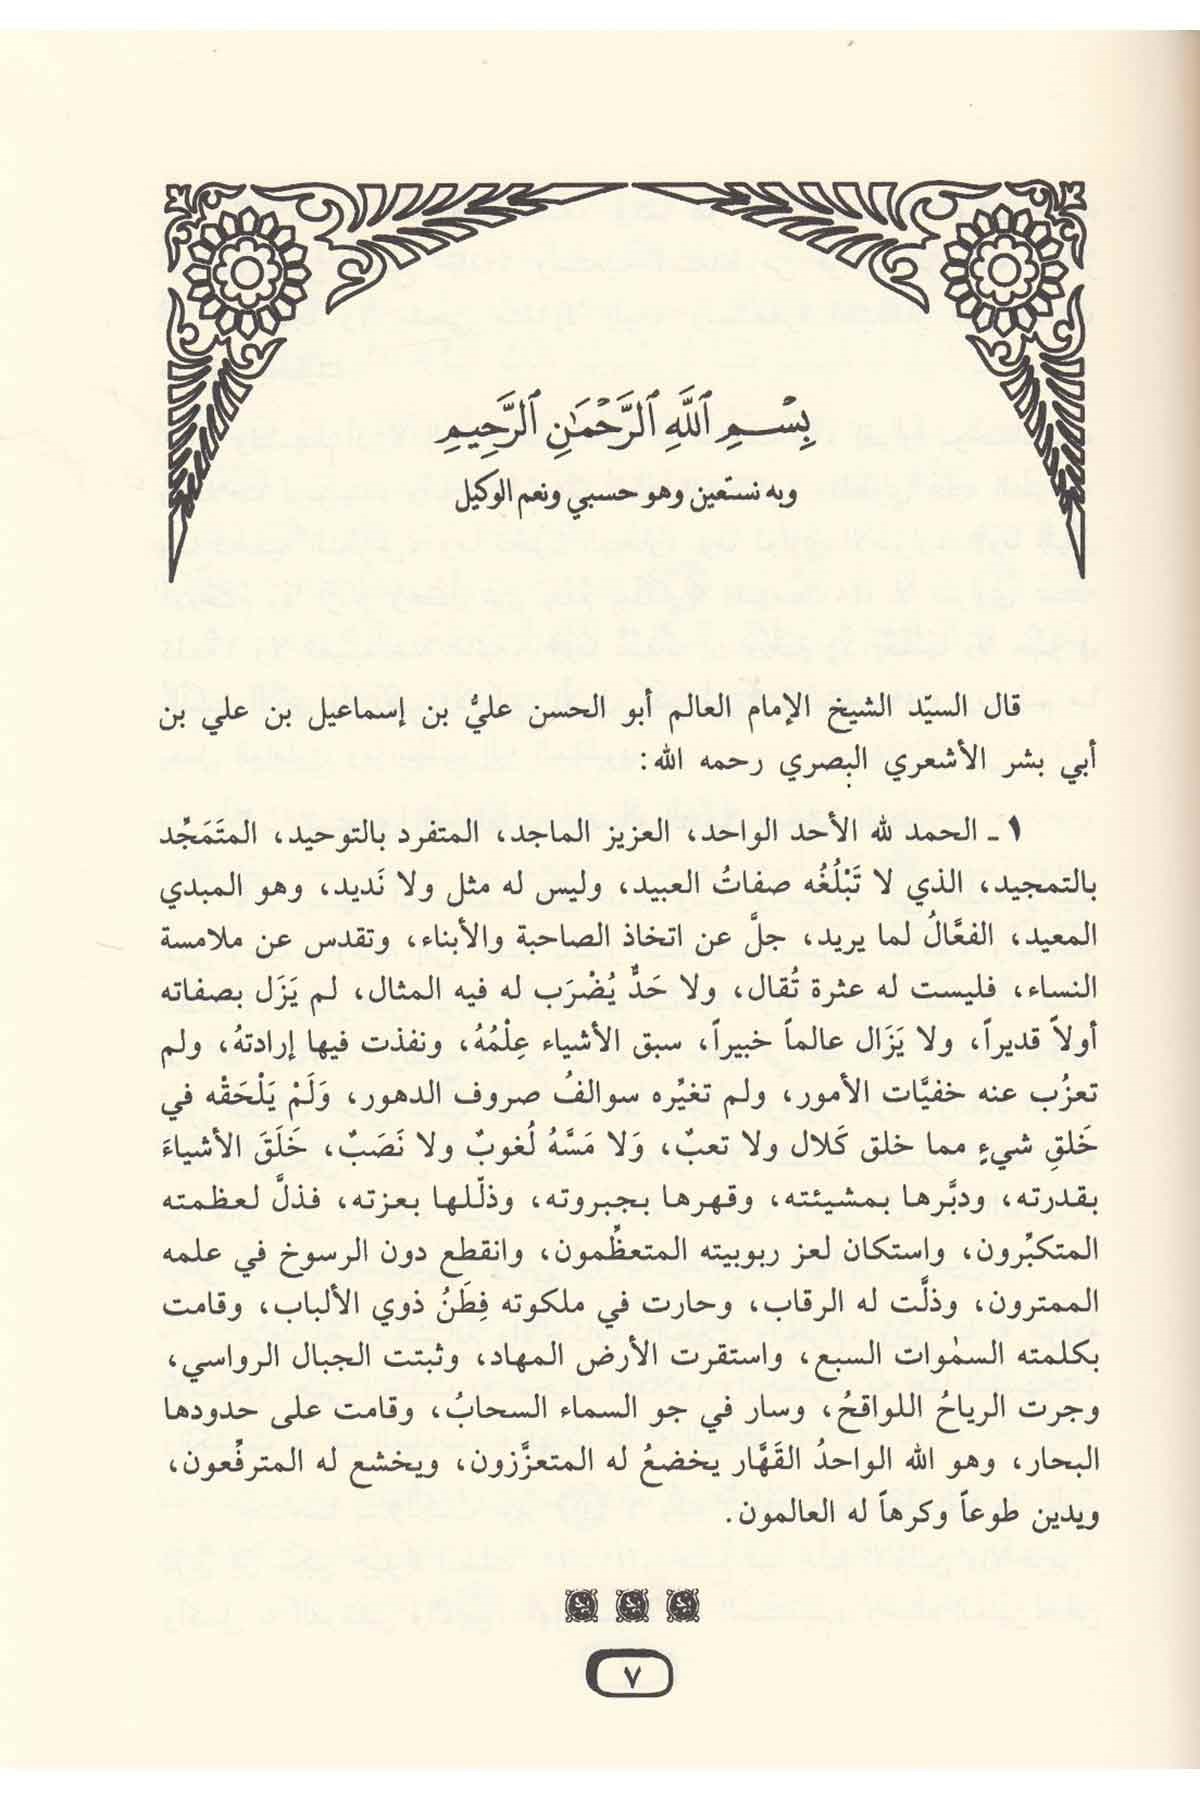 بِسْمِ ٱللَّهِ ٱلرَّحْمَٰنِ ٱلرَّحِيمِ
وبه نستعين وهو حسبي ونعم الوكيل
قال السيّد الشيخ الإمام العالم أبو الحسن عليُّ بن إسماعيل بن علي بن
أبي بشر الأشعري البصري رحمه الله:
١ ـ الحمد لله الأحد الواحد، العزيز الماجد، المتفرد بالتوحيد، المتَمَجِّد
بالتمجيد، الذي لا تَبْلُغُه صفاتُ العبيد، وليس له مثل ولا نَديد، وهو المبدي
المعيد، الفعَّالُ لما يريد، جلَّ عن اتخاذ الصاحبة والأبناء، وتقدس عن ملامسة
النساء، فليست له عثرة تُقال، ولا حَدٌّ يُضْرَب له فيه المثال، لم يَزَل بصفاته
أولاً قديراً، ولا يَزَال عالماً خبيراً، سبق الأشياء عِلْمُهُ، ونفذت فيها إرادتهُ، ولم
تعزُب عنه خفيَّات الأمور، ولم تغيِّره سوالفُ صروف الدهور، وَلَمْ يَلْحَقْه في
خَلقِ شيءٍ مما خلق كَلال ولا تعبٌ، وَلا مَسَّهُ لُغوبٌ ولا نَصَبٌ، خَلَقَ الأشياءَ
بقدرته، ودبَّرها بمشيئته، وقهرها بجبروته، وذلّلها بعزته، فذلَّ لعظمته
المتكبِّرون، واستكان لعز ربوبيته المتعظِّمون، وانقطع دون الرسوخ في علمه
الممترون، وذلَّت له الرقاب، وحارت في ملكوته فِطَنُ ذوي الألباب، وقامت
بكلمته السمٰوات السبع، واستقرت الأرض المهاد، وثبتت الجبال الرواسي،
وجرت الرياحُ اللواقحُ، وسار في جو السماء السحابُ، وقامت على حدودها
البحار، وهو الله الواحدُ القَهَّار يخضعُ له المتعزَّزون، ويخشع له المترفِّعون،
ويدين طوعاً وكرهاً له العالمون.
٧